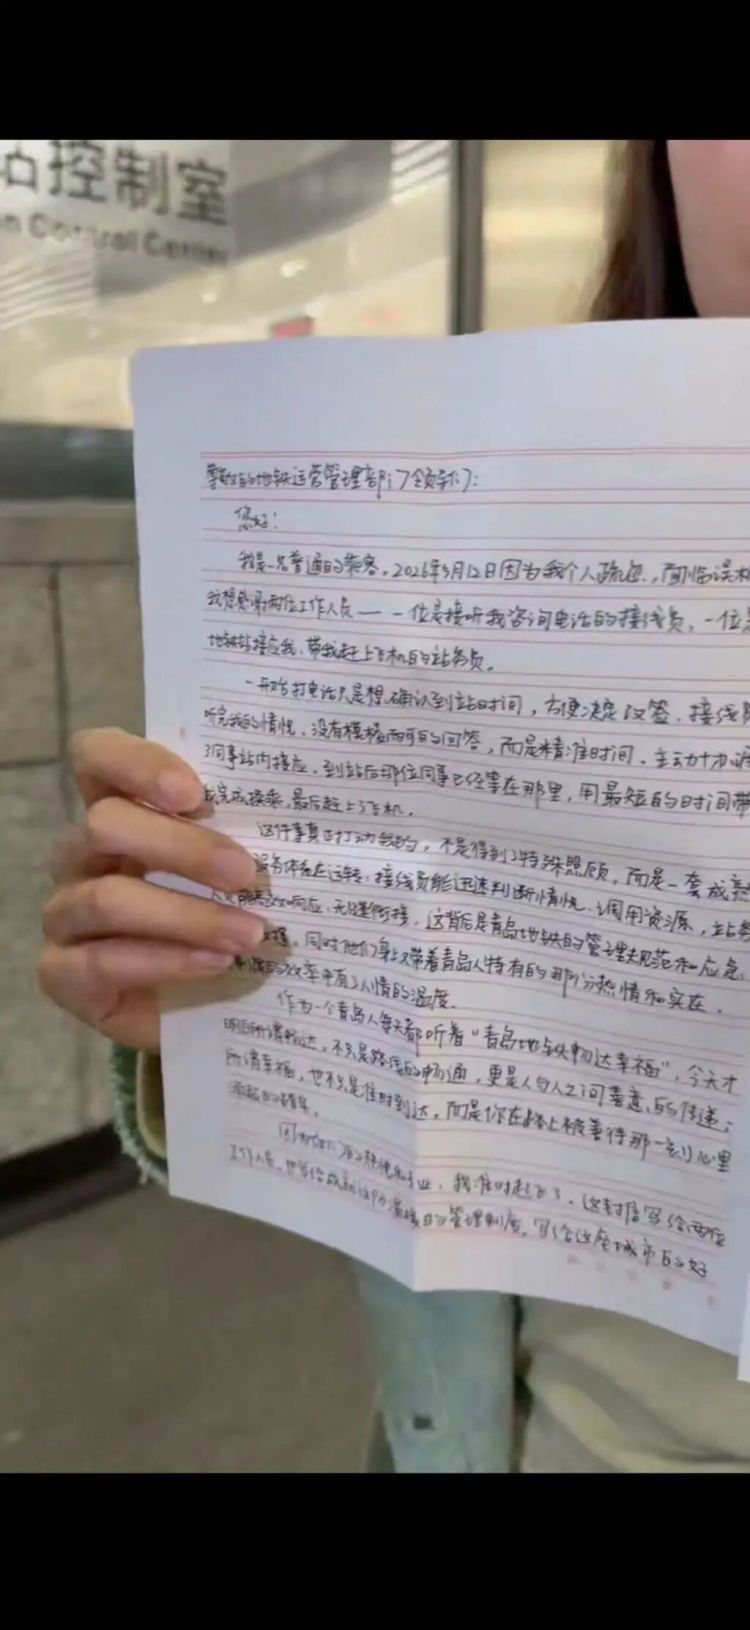 站控制室
n Control Center
尊敬的地铁运营管理部门领导:
您好!
我是一名普通的乘客,2026年5月12日因为我个人疏忽,面临误机
我想感谢两位工作人员——一位是接听我咨询电话的接线员,一位是
地铁站接应我、带我赶上飞机的站务员。
一开始打电话只是想确认到站时间,方便决定改签,接线员
听完我的情况,没有模棱两可的回答,而是精准时间、主动
了同事站内接应,到站后那位同事已经等在那里,用最短的时间带
我完成换乘,最后赶上飞机。
这件事真正打动我的,不是得到了特殊照顾,而是一套成熟
服务体系在运转:接线员能迅速判断情况、调用资源,站务
响应、无缝衔接,这背后是青岛地铁的管理规范和应急
同时他们身上又带着青岛人特有的那份热情和实在,
的效率中有了人情的温度。
作为一个青岛人每天都听着“青岛地铁畅达幸福”,今天才
明白所谓畅达,不只是路线的畅通,更是人与人之间善意的传递;
所谓幸福,也不只是准时到达,而是你在路上被善待那一刻心里

因为他们的 专业,我准时赶上了,这封信写给两位
工作人员,也写给 温暖的管理制度,写给这座城市的好